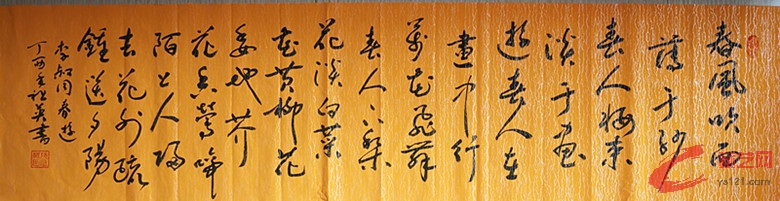 春風吹面
薄于紗
春人妝束
淡于畫
遊春人在
畫中行
萬花飛舞
春人下梨
花淡白菜
花黄柳花
委地芥
花香鶯啼
陌上人歸
去花外疏
鐘送夕陽
李叔同春遊
丁酉年英書
ys121.com